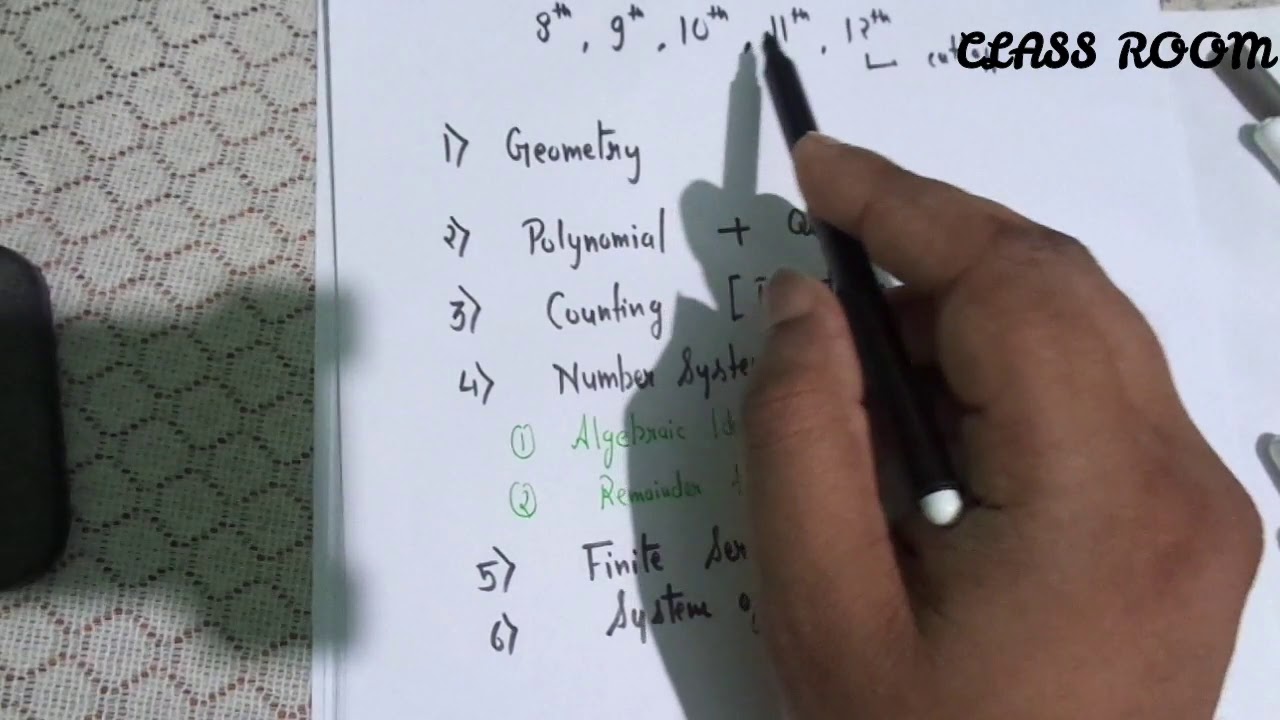 8th, 9th, 10th, 11th, 12th
CLASS ROOM
1) Geometry
2) Polynomial +
3) Counting [
4) Number System
① Algebraic
② Remainder
5) Finite
6) System